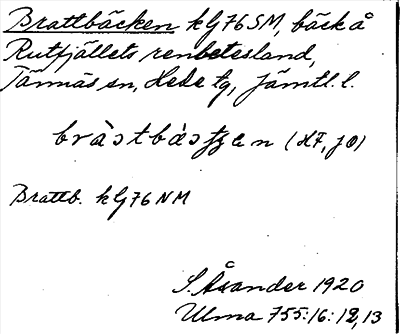 Brattbäcken kG76SM, bäck å
Rutfjällets renbetesland,
Tännäs sn, Hede tg, Jämtl. l.
Brattb. kG76NM
S. Åsander 1920
Ulma 755:16:12,13